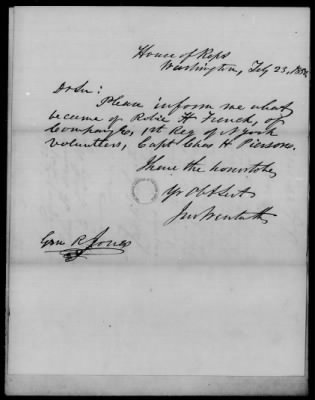 House of Reps
Washington, Feby 23, 
Dr Sir:
Please inform me what
became of Robie H French, of
Company 1st Reg of N York
volunteers, Capt Chas H Pierson.
I have the honor to be,
Yr Obt Servt
Jno Wentworth
Gen R Jones